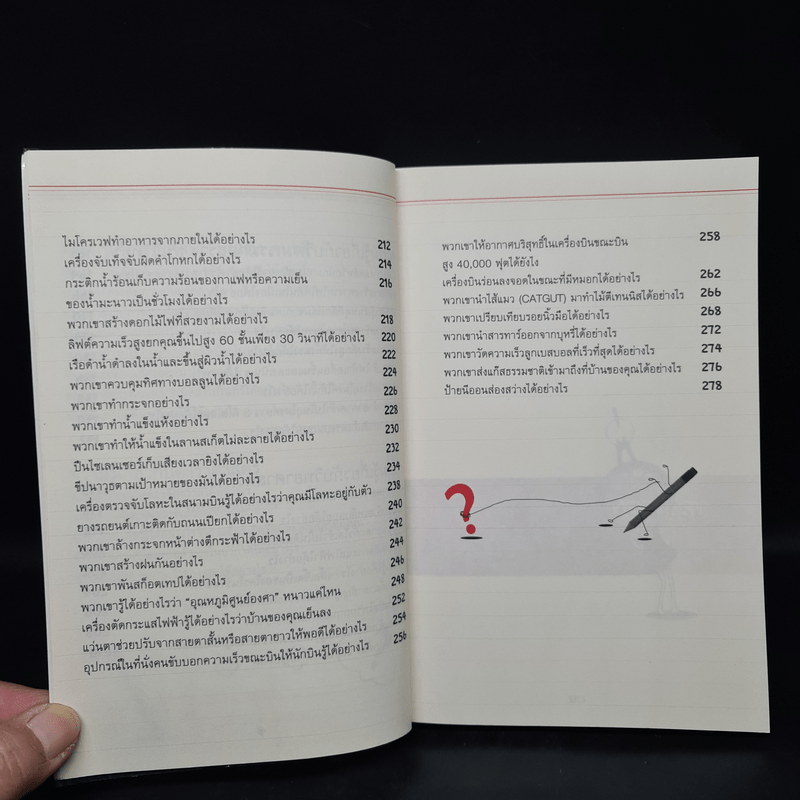 ไมโครเวฟทำอาหารจากภายในได้อย่างไร 212
เครื่องจับเท็จจับผิดคำโกหกได้อย่างไร 214
กระติกน้ำร้อนเก็บความร้อนของกาแฟหรือความเย็น 216
ของน้ำมะนาวเป็นชั่วโมงได้อย่างไร
พวกเขาสร้างดอกไม้ไฟที่สวยงามได้อย่างไร 218
ลิฟต์ความเร็วสูงยกคุณขึ้นไปสูง 60 ชั้นเพียง 30 วินาทีได้อย่างไร 220
เรือดำน้ำดำลงในน้ำและขึ้นสู่ผิวน้ำได้อย่างไร 222
พวกเขาควบคุมทิศทางบอลลูนได้อย่างไร 224
พวกเขาทำกระจกอย่างไร 226
พวกเขาทำน้ำแข็งแห้งอย่างไร 228
พวกเขาทำให้น้ำแข็งในลานสเก็ตไม่ละลายได้อย่างไร 230
ปืนไซเลนเซอร์เก็บเสียงเวลายิงได้อย่างไร 232
ขีปนาวุธตามเป้าหมายของมันได้อย่างไร 234
เครื่องตรวจจับโลหะในสนามบินรู้ได้อย่างไรว่าคุณมีโลหะอยู่กับตัว 238
ยางรถยนต์เกาะติดกับถนนเปียกได้อย่างไร 240
พวกเขาล้างกระจกหน้าต่างตึกระฟ้าได้อย่างไร 242
พวกเขาสร้างฝนกันอย่างไร 244
พวกเขาพันสก็อตเทปได้อย่างไร 246
พวกเขารู้ได้อย่างไรว่า "อุณหภูมิศูนย์องศา" หนาวแค่ไหน 248
เครื่องตัดกระแสไฟฟ้ารู้ได้อย่างไรว่าบ้านของคุณเย็นลง 252
แว่นตาช่วยปรับจากสายตาสั้นหรือสายตายาวให้พอดีได้อย่างไร 254
อุปกรณ์ในที่นั่งคนขับบอกความเร็วขณะบินให้นักบินรู้ได้อย่างไร 256
พวกเขาให้อากาศบริสุทธิ์ในเครื่องบินขณะบิน 258
สูง 40,000 ฟุตได้ยังไง
เครื่องบินร่อนลงจอดในขณะที่มีหมอกได้อย่างไร 262
พวกเขานำไส้แมว (CATGUT) มาทำไม้ตีเทนนิสได้อย่างไร 266
พวกเขาเปรียบเทียบรอยนิ้วมือได้อย่างไร 268
พวกเขานำสารทาร์ออกจากบุหรี่ได้อย่างไร 272
พวกเขาวัดความเร็วลูกเบสบอลที่เร็วที่สุดได้อย่างไร 274
พวกเขาส่งแก๊สธรรมชาติเข้ามาถึงที่บ้านของคุณได้อย่างไร 276
ป้ายนีออนส่องสว่างได้อย่างไร 278